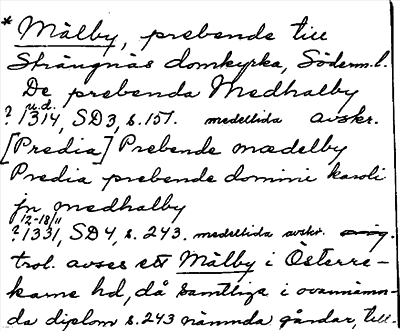 * Mälby, prebende till
Strängnäs domkyrka, Söderm.l.
De prebenda Medhalby
u.d.
? 1314, SD 3, s. 151. medeltida avskr.
[Predia] Prebende mædelby
Predia prebende domini karoli
jn medhalby
12-18/11
? 1331, SD 4, s. 243. medeltida avskr.
trol. avses ett Mälby i Österre-
karne hd, då samtliga i ovannämn-
da diplom s. 243 nämnda gårdar, till-